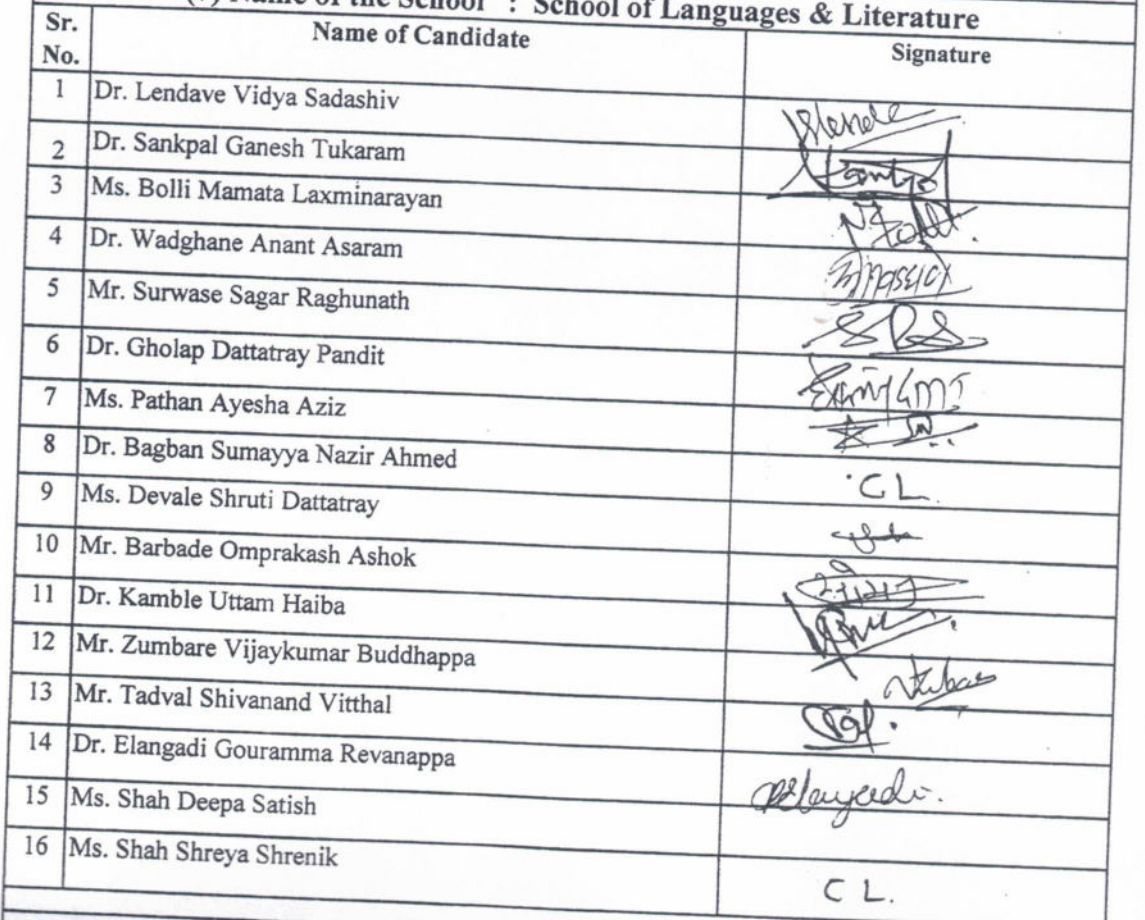 Name of the School : School of Languages & Literature
Sr. No. Name of Candidate Signature
1 Dr. Lendave Vidya Sadashiv
2 Dr. Sankpal Ganesh Tukaram
3 Ms. Bolli Mamata Laxminarayan
4 Dr. Wadghane Anant Asaram
5 Mr. Surwase Sagar Raghunath
6 Dr. Gholap Dattatray Pandit
7 Ms. Pathan Ayesha Aziz
8 Dr. Bagban Sumayya Nazir Ahmed C L.
9 Ms. Devale Shruti Dattatray
10 Mr. Barbade Omprakash Ashok
11 Dr. Kamble Uttam Haiba
12 Mr. Zumbare Vijaykumar Buddhappa
13 Mr. Tadval Shivanand Vitthal
14 Dr. Elangadi Gouramma Revanappa
15 Ms. Shah Deepa Satish
16 Ms. Shah Shreya Shrenik C L.